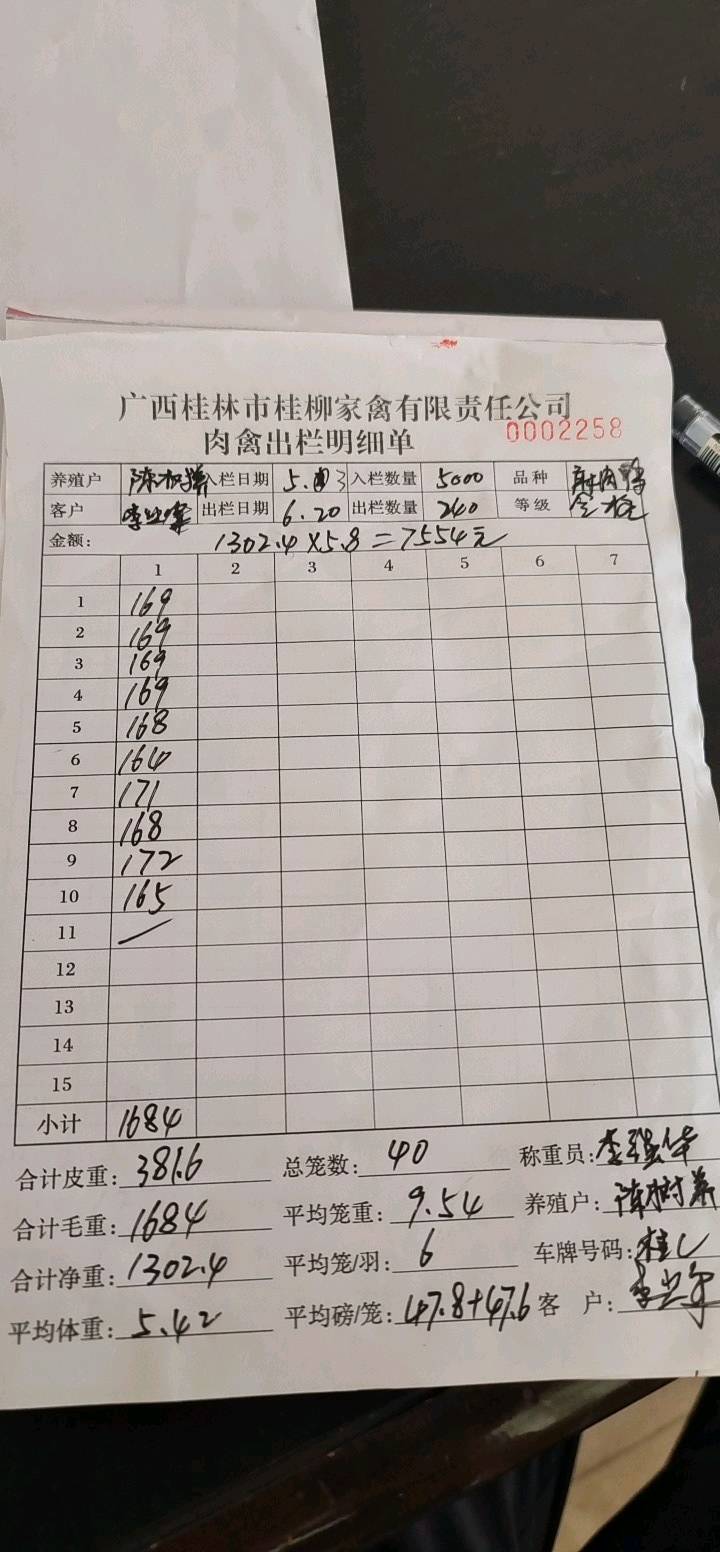 广西桂林市桂柳家禽有限责任公司
肉禽出栏明细单 0002258
养殖户 入栏日期 5. 3 入栏数量 5000 品种
客户 出栏日期 6.20 出栏数量 240 等级
金额: 1302.4×5.8=7554元
1 2 3 4 5 6 7
1 169
2 169
3 169
4 169
5 168
6 164
7 171
8 168
9 172
10 165
11
12
13
14
15
小计 1684
合计皮重: 381.6 总笼数: 40 称重员: 李强华
合计毛重: 1684 平均笼重: 9.54 养殖户:
合计净重: 1302.4 平均笼/羽: 6 车牌号码: 桂
平均体重: 5.42 平均磅/笼: 47.8+47.6 客 户: